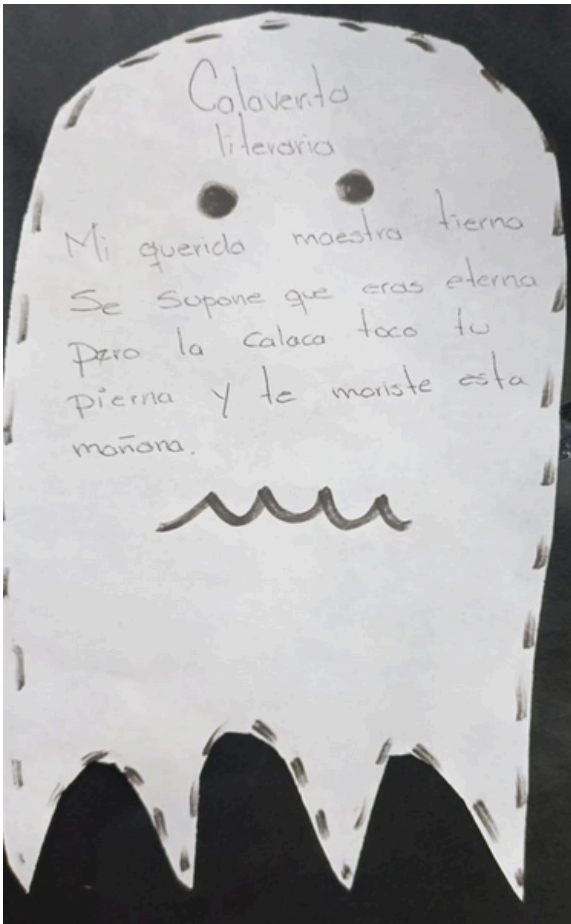 Calaverita
literaria
Mi querida maestra tierna
Se supone que eras eterna
Pero la calaca toco tu
pierna y te moriste esta
mañana.